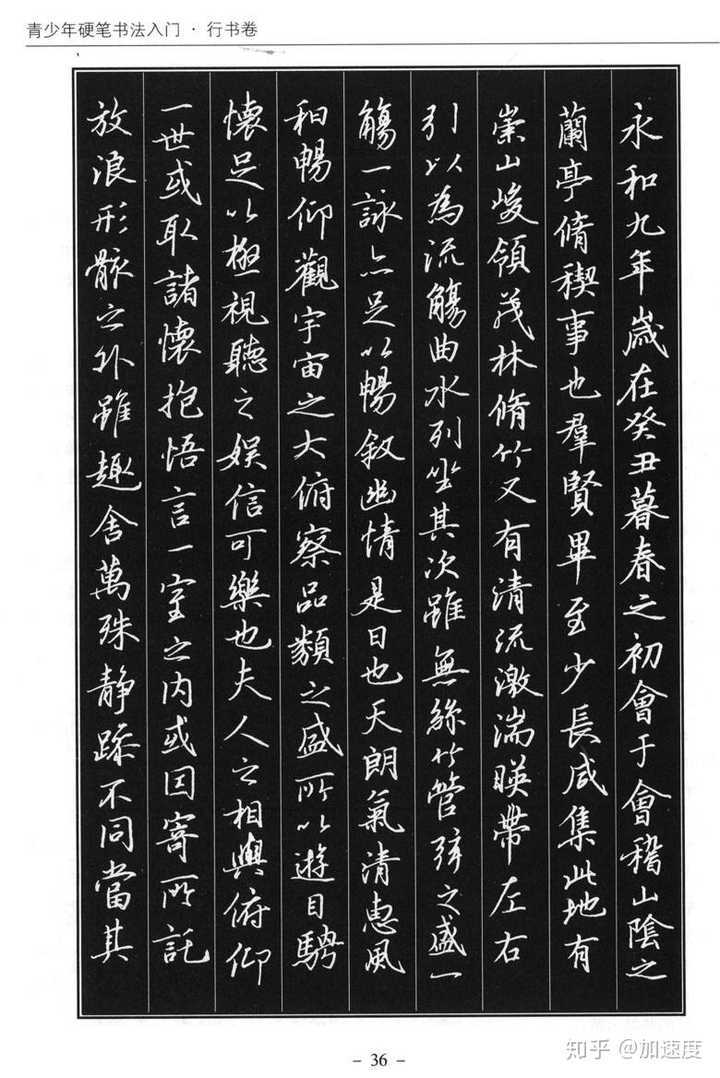 青少年硬笔书法入门 · 行书卷
永和九年歲在癸丑暮春之初會于會稽山陰之
蘭亭脩稧事也羣賢畢至少長咸集此地有
崇山峻領茂林脩竹又有清流激湍暎帶左右
引以為流觴曲水列坐其次雖無絲竹管弦之盛一
觴一詠亦足以暢叙幽情是日也天朗氣清惠風
和暢仰觀宇宙之大俯察品類之盛所以遊目騁
懷足以極視聽之娱信可樂也夫人之相與俯仰
一世或取諸懷抱悟言一室之内或因寄所託
放浪形骸之外雖趣舍萬殊静躁不同當其
- 36 -
知乎 @加速度